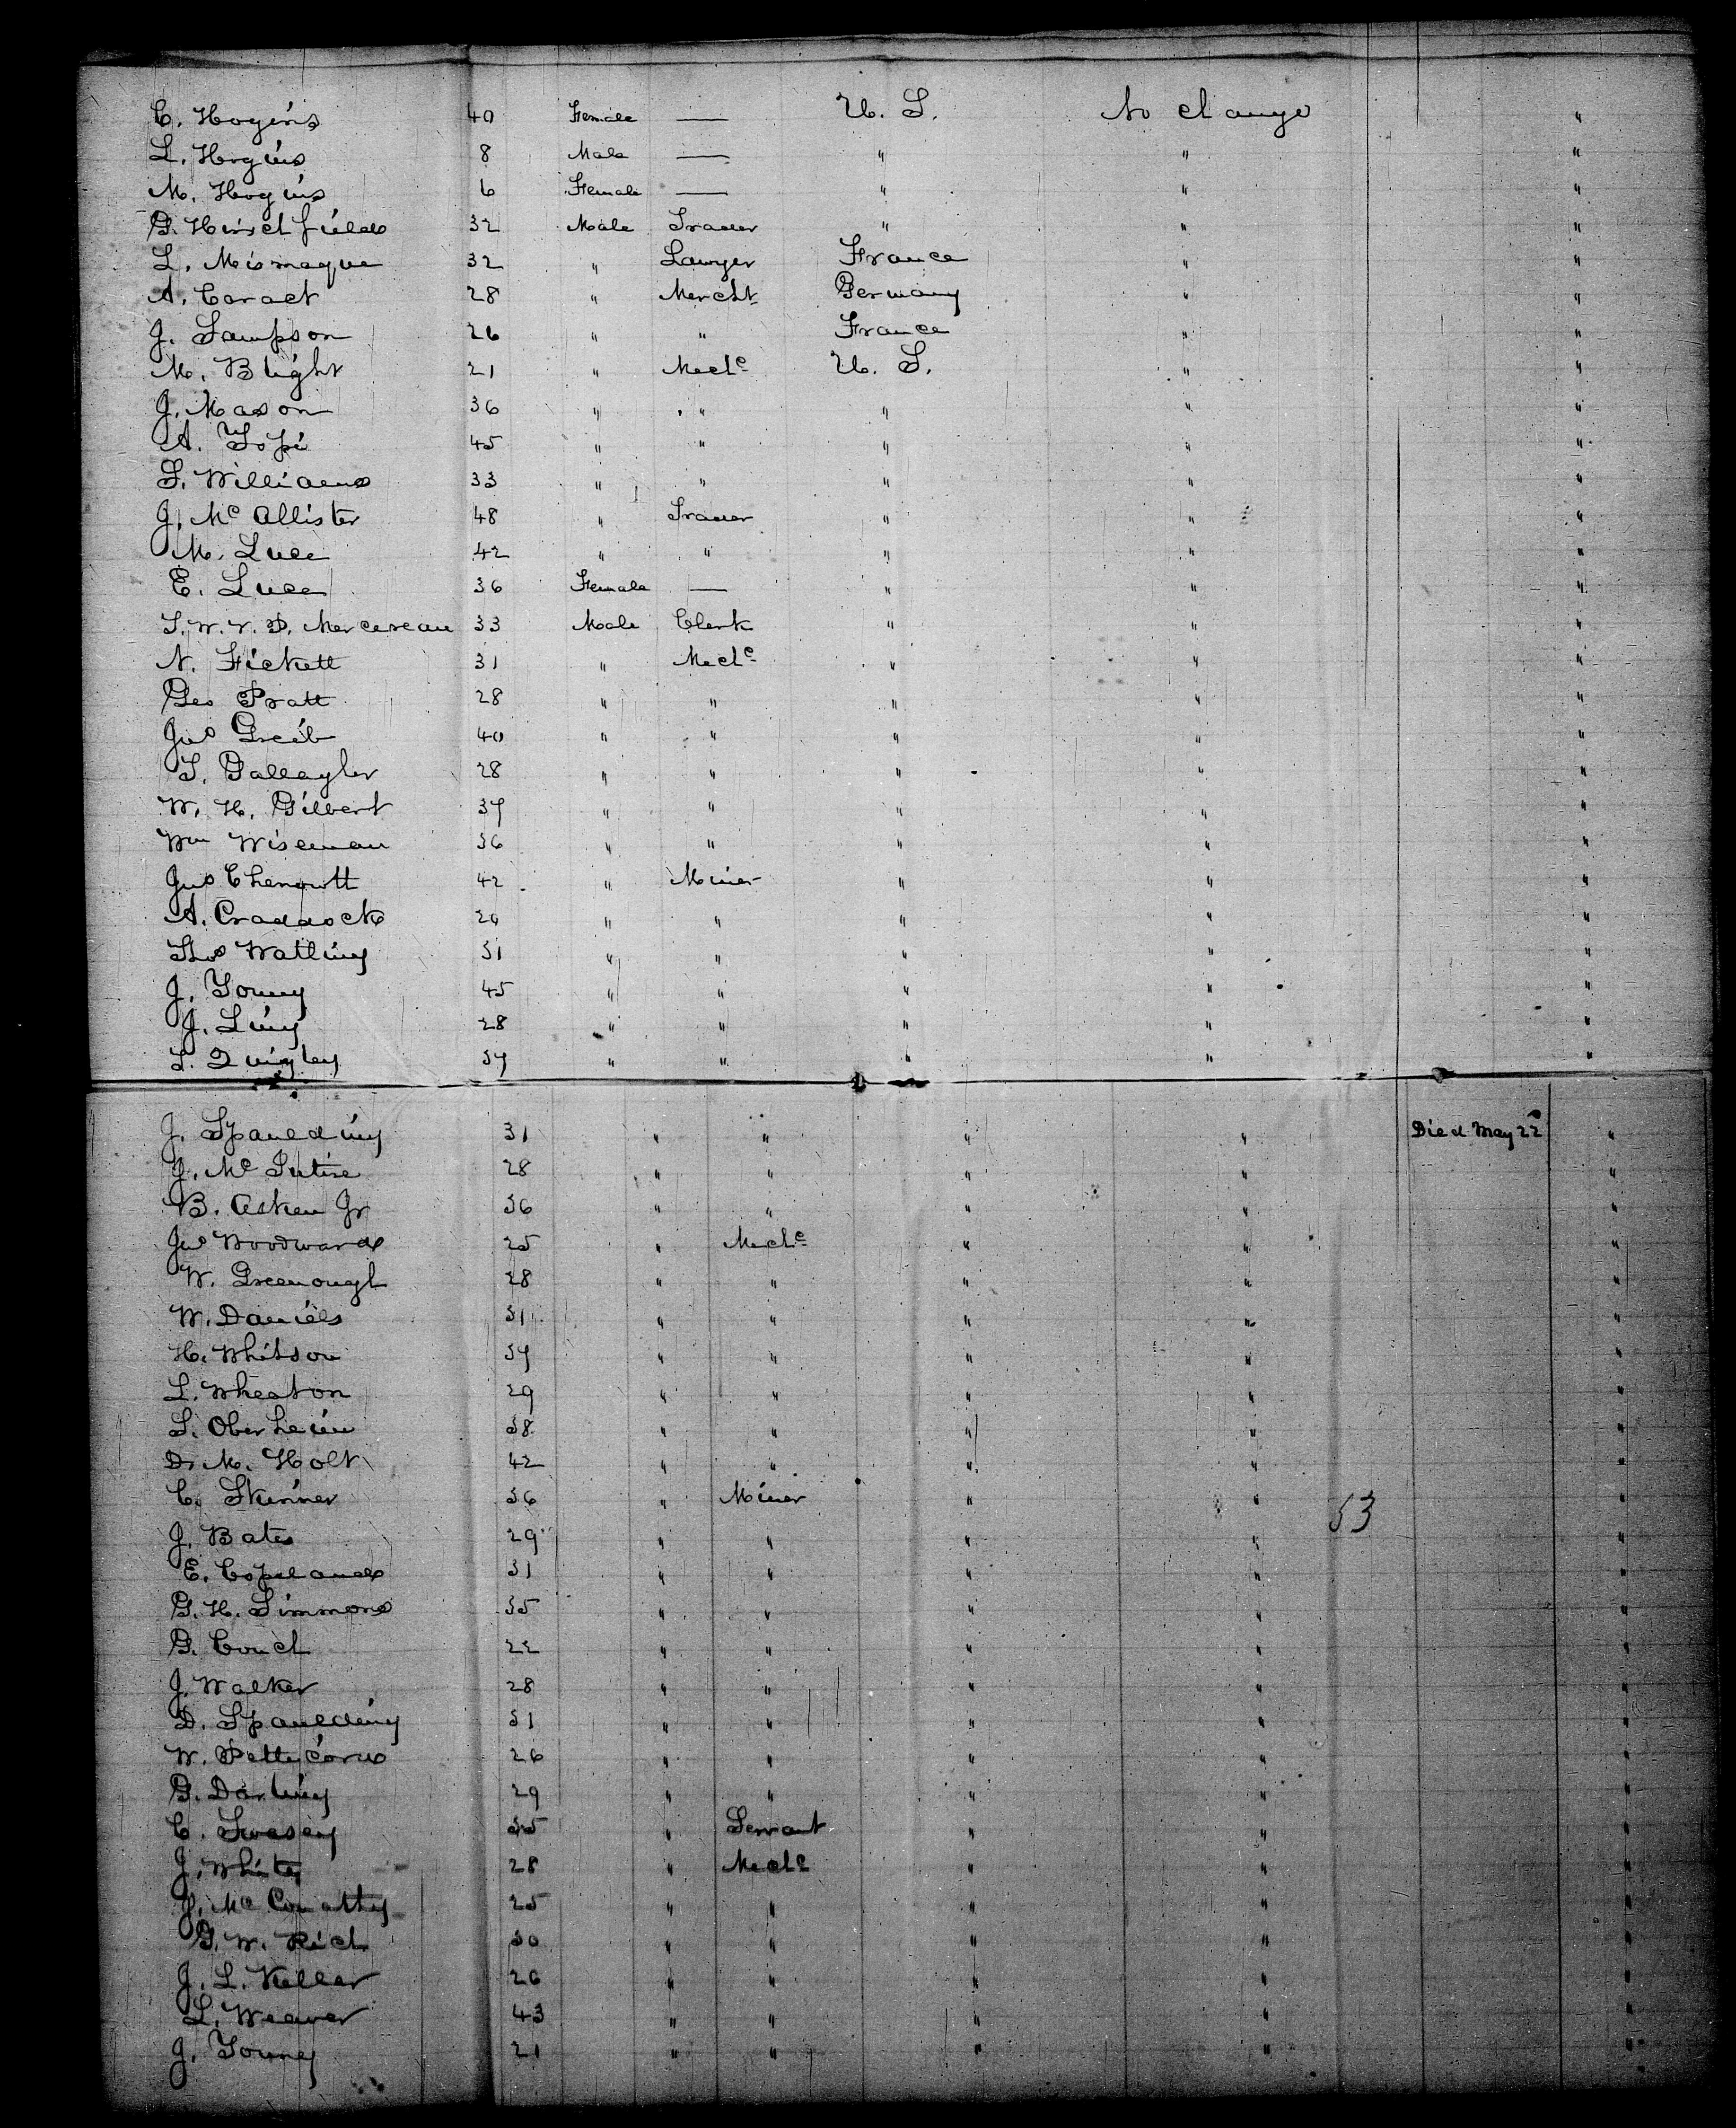 C. Hogins 40 Female — U. S. No change "
L. Hogins 8 Male — " " "
M. Hogins 6 Female — " " "
G. Hirschfield 32 Male Trader " " "
L. Mismaque 32 " Lawyer France " "
A. Coract 28 " Mercht Germany " "
J. Sampson 26 " " France " "
M. Blight 21 " Mechc U. S. " "
J. Mason 36 " " " " "
A. Topi 45 " " " " "
S. Williams 33 " " " " "
J. Mc Allister 48 " Trader " " "
M. Luce 42 " " " " "
E. Luce 36 Female — " " "
S. W. V. D. Mercereau 33 Male Clerk " " "
N. Fickett 31 " Mechc " " "
Geo Pratt 28 " " " " "
Jno Greib 40 " " " " "
T. Gallagher 28 " " " " "
W. H. Gilbert 37 " " " " "
Wm Wiseman 36 " " " " "
Jno Chenowtt 42 " Miner " " "
A. Craddock 26 " " " " "
Thos Watling 31 " " " " "
J. Young 45 " " " " "
J. Ling 28 " " " " "
S. Quigley 37 " " " " "
J. Spaulding 31 " " " " Died May 22d "
J. Mc Intire 28 " " " " "
B. Asken Jr 36 " " " " "
Jno Woodward 25 " Mechc " " "
W. Greenough 28 " " " " "
W. Daniels 31 " " " " "
H. Whitson 37 " " " " "
L. Wheaton 29 " " " " "
S. Oberheim 38 " " " " "
D. M. Holt 42 " " " " "
C. Skinner 36 " Miner " " "
53
J. Bates 29 " " " " "
E. Copeland 31 " " " " "
G. H. Simmons 35 " " " " "
G. Couch 22 " " " " "
J. Walker 28 " " " " "
D. Spaulding 31 " " " " "
W. Pettycord 26 " " " " "
G. Darling 29 " " " " "
C. Swasey 35 " Servant " " "
J. White 28 " Mechc " " "
J. Mc Conathy 25 " " " " "
G. W. Rich 30 " " " " "
J. L. Keller 26 " " " " "
L. Weaver 43 " " " " "
J. Young 21 " " " " "